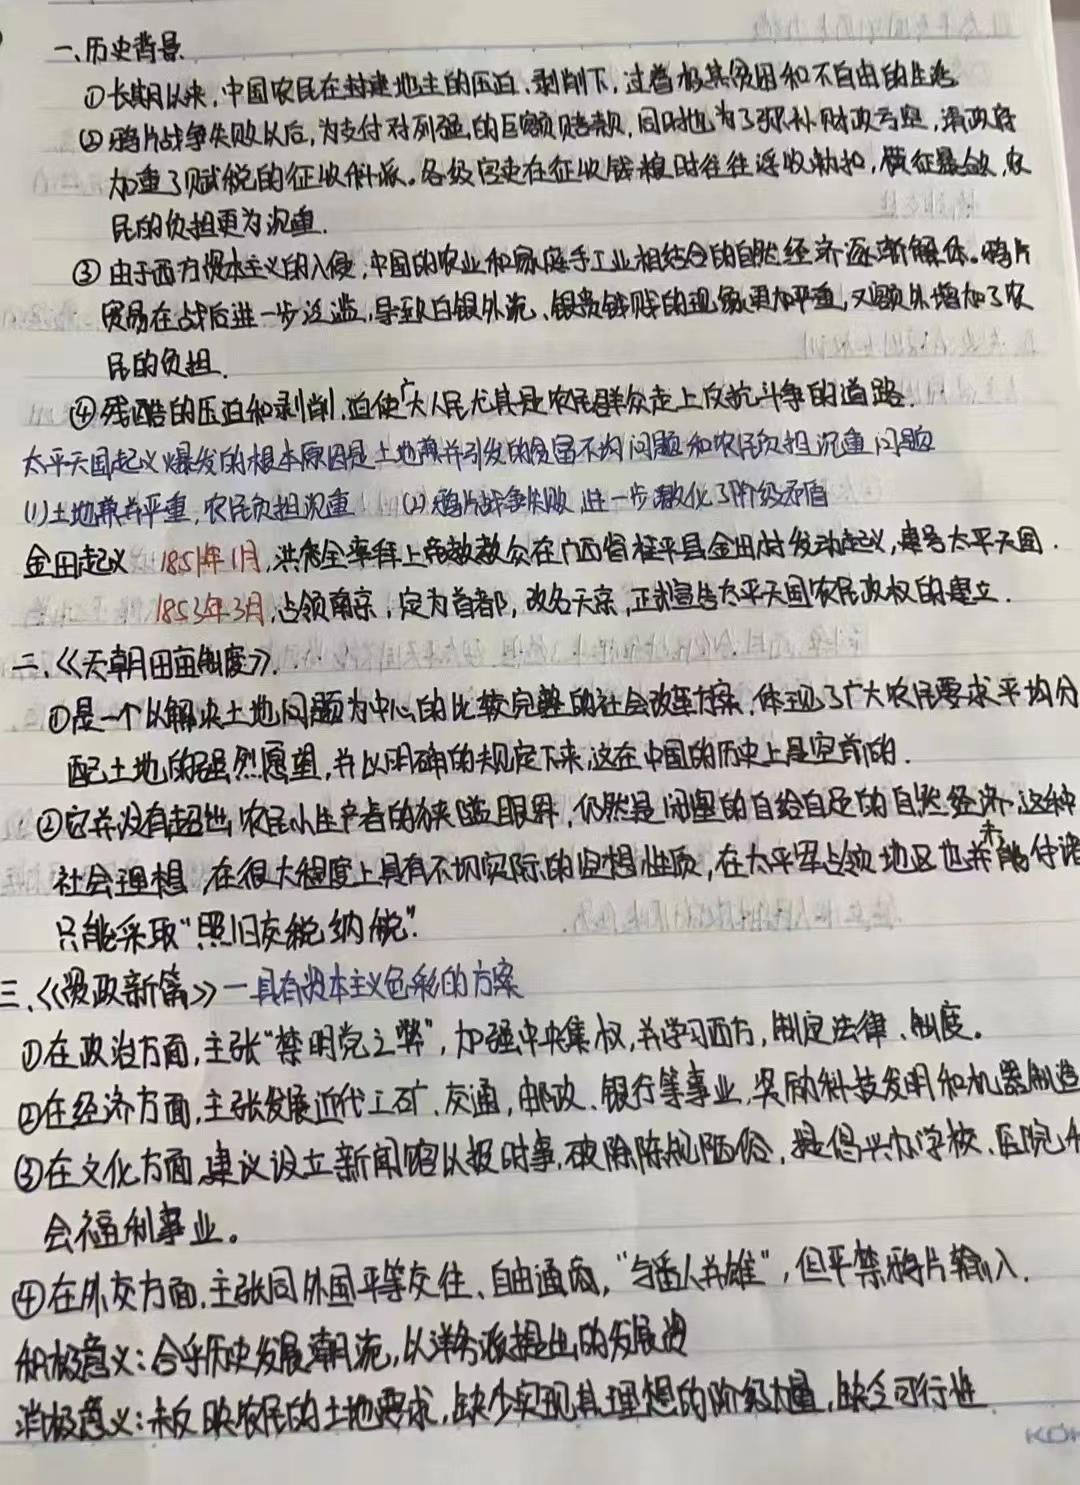 一、历史背景
①长期以来,中国农民在封建地主的压迫、剥削下,过着极其贫困和不自由的生活
②鸦片战争失败以后,为支付对列强的巨额赔款,同时也为了弥补财政亏空,清政府
加重了赋税的征收科派。各级官吏在征收钱粮时往往浮收勒扣,横征暴敛,农
民的负担更为沉重.
③由于西方资本主义的入侵,中国的农业和家庭手工业相结合的自然经济逐渐解体。鸦片
贸易在战后进一步泛滥,导致白银外流、银贵钱贱的现象更加严重,又额外增加了农
民的负担.
④残酷的压迫和剥削,迫使广大人民尤其是农民群众走上反抗斗争的道路.
太平天国起义爆发的根本原因是土地兼并引发的贫富不均问题和农民负担沉重问题
(1)土地兼并严重,农民负担沉重 (2)鸦片战争失败,进一步激化了阶级矛盾
金田起义 1851年1月,洪秀全率拜上帝教教众在广西省桂平县金田村发动起义,建号太平天国.
1853年3月,占领南京,定为首都,改名天京,正式宣告太平天国农民政权的建立.
二、《天朝田亩制度》.
①是一个以解决土地问题为中心的比较完整的社会改革方案.体现了广大农民要求平均分
配土地的强烈愿望,并以明确的规定下来,这在中国的历史上是空前的.
②它并没有超出农民小生产者的狭隘眼界,仍然是闭塞的自给自足的自然经济.这种
社会理想,在很大程度上具有不切实际的空想性质,在太平军占领地区也并未能付诸
只能采取"照旧交税纳税".
三、《资政新篇》—具有资本主义色彩的方案
①在政治方面,主张"禁朋党之弊",加强中央集权,并学习西方,制定法律、制度。
②在经济方面,主张发展近代工矿、交通,邮政、银行等事业,奖励科技发明和机器制造
③在文化方面,建议设立新闻馆以报时事,破除陈规陋俗,提倡兴办学校、医院
会福利事业。
④在外交方面,主张同外国平等交往、自由通商,"与番人并雄",但严禁鸦片输入.
积极意义:合乎历史发展潮流,以洋务派提出的发展
消极意义:未反映农民的土地要求,缺少实现其理想的阶级力量,缺乏可行性